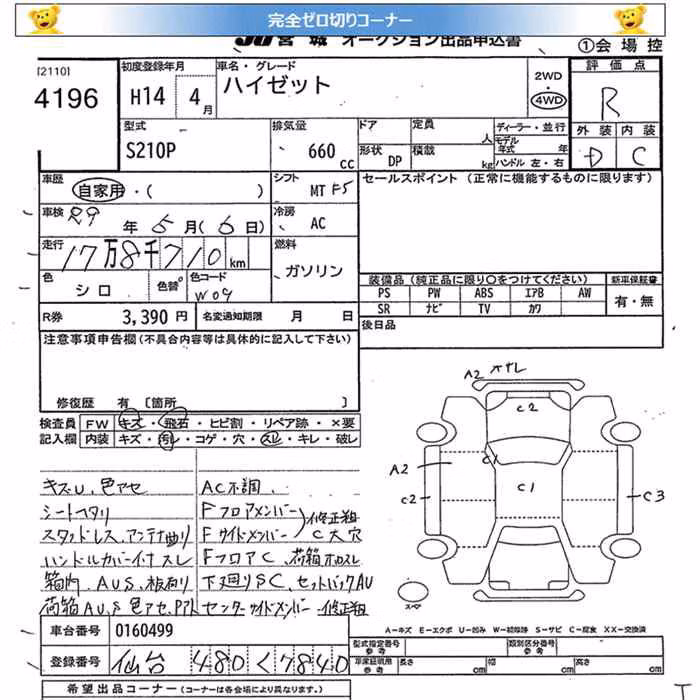 完全ゼロ切りコーナー
JU宮城 オークション出品申込書
①会場控
[2110]
4196
初度登録年月
H14 4月
車名・グレード
ハイゼット
2WD
・
4WD
評価点
R
外装 内装
D C
型式
S210P
排気量
660 cc
ドア
定員
人
形状 DP
積載
kg
ディーラー・並行
モデル年式 年
ハンドル 左・右
車歴
自家用・( )
シフト
MT F5
セールスポイント (正常に機能するものに限ります)
車検
29年5月(6日)
冷房
AC
走行
17万8千710km
燃料
ガソリン
色
シロ
色替
色コード
W09
装備品(純正品に限り〇をつけてください)
新車保証書
PS PW ABS エアB AW
SR ナビ TV カワ
有・無
R券
3,390円
名変通知期限 月 日
後日品
注意事項申告欄(不具合内容等は具体的に記入して下さい)
修復歴 有 〔箇所 〕
検査員記入欄
FW キズ・飛石・ヒビ割・リペア跡・×要
内装 キズ・汚レ・コゲ・穴・スレ・キレ・破レ
A2
C2
C1
A2
C2
C1
C3
スペア
キズU、色アセ
AC不調、
シートヘタリ
Fフロアメンバー
修正粗
スタッドレス、アンテナ曲り
Fサイドメンバー
C大穴
ハンドルカバーイナスレ
FフロアC、荷箱
箱内、AUS、板有り
下廻りSC、セットバックAU
荷箱AU、S色アセ、
センターサイドメンバー修正粗
車台番号 0160499
登録番号 仙台 480 く 7840
A―キズ E―エクボ U―凹み W―補修跡 S―サビ C―腐食 XX―交換済
型式指定番号 参考
類別区分番号 参考
車庫証明用 参考
長さ cm
幅 cm
高さ cm
希望出品コーナー(コーナーは各会場により異なります。)